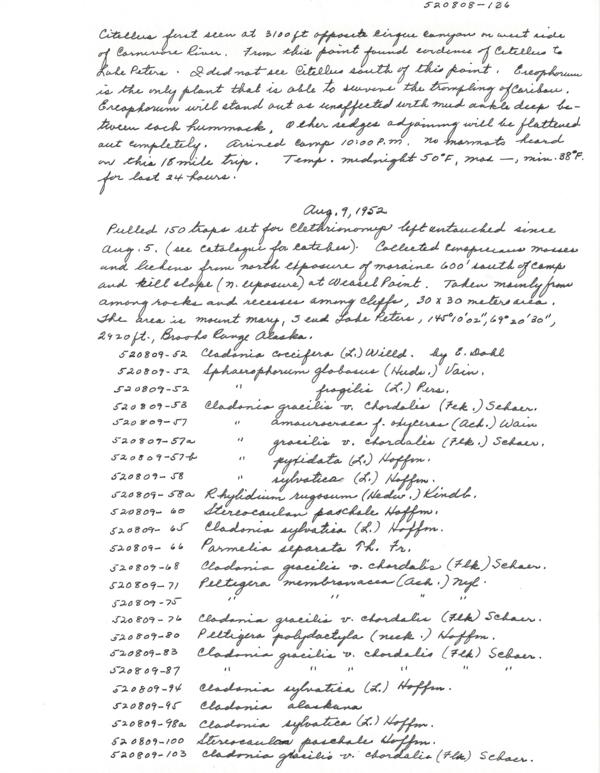 520808-126
Citellus first seen at 3100 ft opposite Cirque Canyon on west side
of Carnivore River. From this point found evidence of Citellus to
Lake Peters. I did not see Citellus south of this point. Eriophorum
is the only plant that is able to survive the trampling of Caribou.
Eriophorum will stand out as unaffected with mud ankle deep be-
tween each hummock, other sedges adjoining will be flattened
out completely. Arrived camp 10:00 P.M. no marmots heard
on this 18 mile trip. Temp. midnight 50°F, max —, min. 38°F.
for last 24 hours.
Aug. 9, 1952
Pulled 150 traps set for Clethrionomys left untouched since
Aug. 5. (see catalogue for catches). Collected conspicuous mosses
and lichens from north exposure of moraine 600' south of camp
and hill slope (n. exposure) at Weasel Point. Taken mainly from
among rocks and recesses among cliffs, 30 x 30 meter area.
The area is mount mary, S end Lake Peters, 145°10'02", 69°20'30",
2920 ft., Brooks Range Alaska.
520809-52 Cladonia coccifera (L.) Willd. by E. Dahl
520809-52 Sphaerophorum globosus (Huds.) Vain.
520809-52 " fragilis (L.) Pers.
520809-53 Cladonia gracilis v. chordalis (Flk.) Schaer.
520809-57 " amaurocraea f. oxyceras (Ach.) Wain
520809-57a " gracilis v. chordalis (Flk.) Schaer.
520809-57b " pyxidata (L.) Hoffm.
520809-58 " sylvatica (L.) Hoffm.
520809-58a Rhytidium rugosum (Hedw.) Kindb.
520809-60 Stereocaulan paschale Hoffm.
520809-65 Cladonia sylvatica (L.) Hoffm.
520809-66 Parmelia separata Th. Fr.
520809-68 Cladonia gracilis v. chordalis (Flk) Schaer.
520809-71 Peltigera membranacea (Ach.) Nyl.
520809-75 " " " "
520809-76 Cladonia gracilis v. chordalis (Flk) Schaer.
520809-80 Peltigera polydactyla (neck.) Hoffm.
520809-83 Cladonia gracilis v. chordalis (Flk) Schaer.
520809-87 " " " " " "
520809-94 Cladonia sylvatica (L.) Hoffm.
520809-95 Cladonia alaskana
520809-98a Cladonia sylvatica (L.) Hoffm.
520809-100 Stereocaulan paschale Hoffm.
520809-103 Cladonia gracilis v. chordalis (Flk) Schaer.